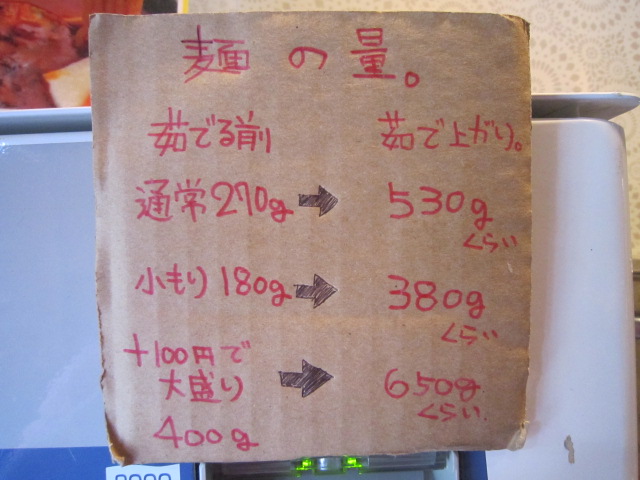 麺の量。
茹でる前 茹で上がり。
通常270g → 530g
くらい
小もり180g → 380g
くらい
+100円で
大盛り → 650g
くらい
400g